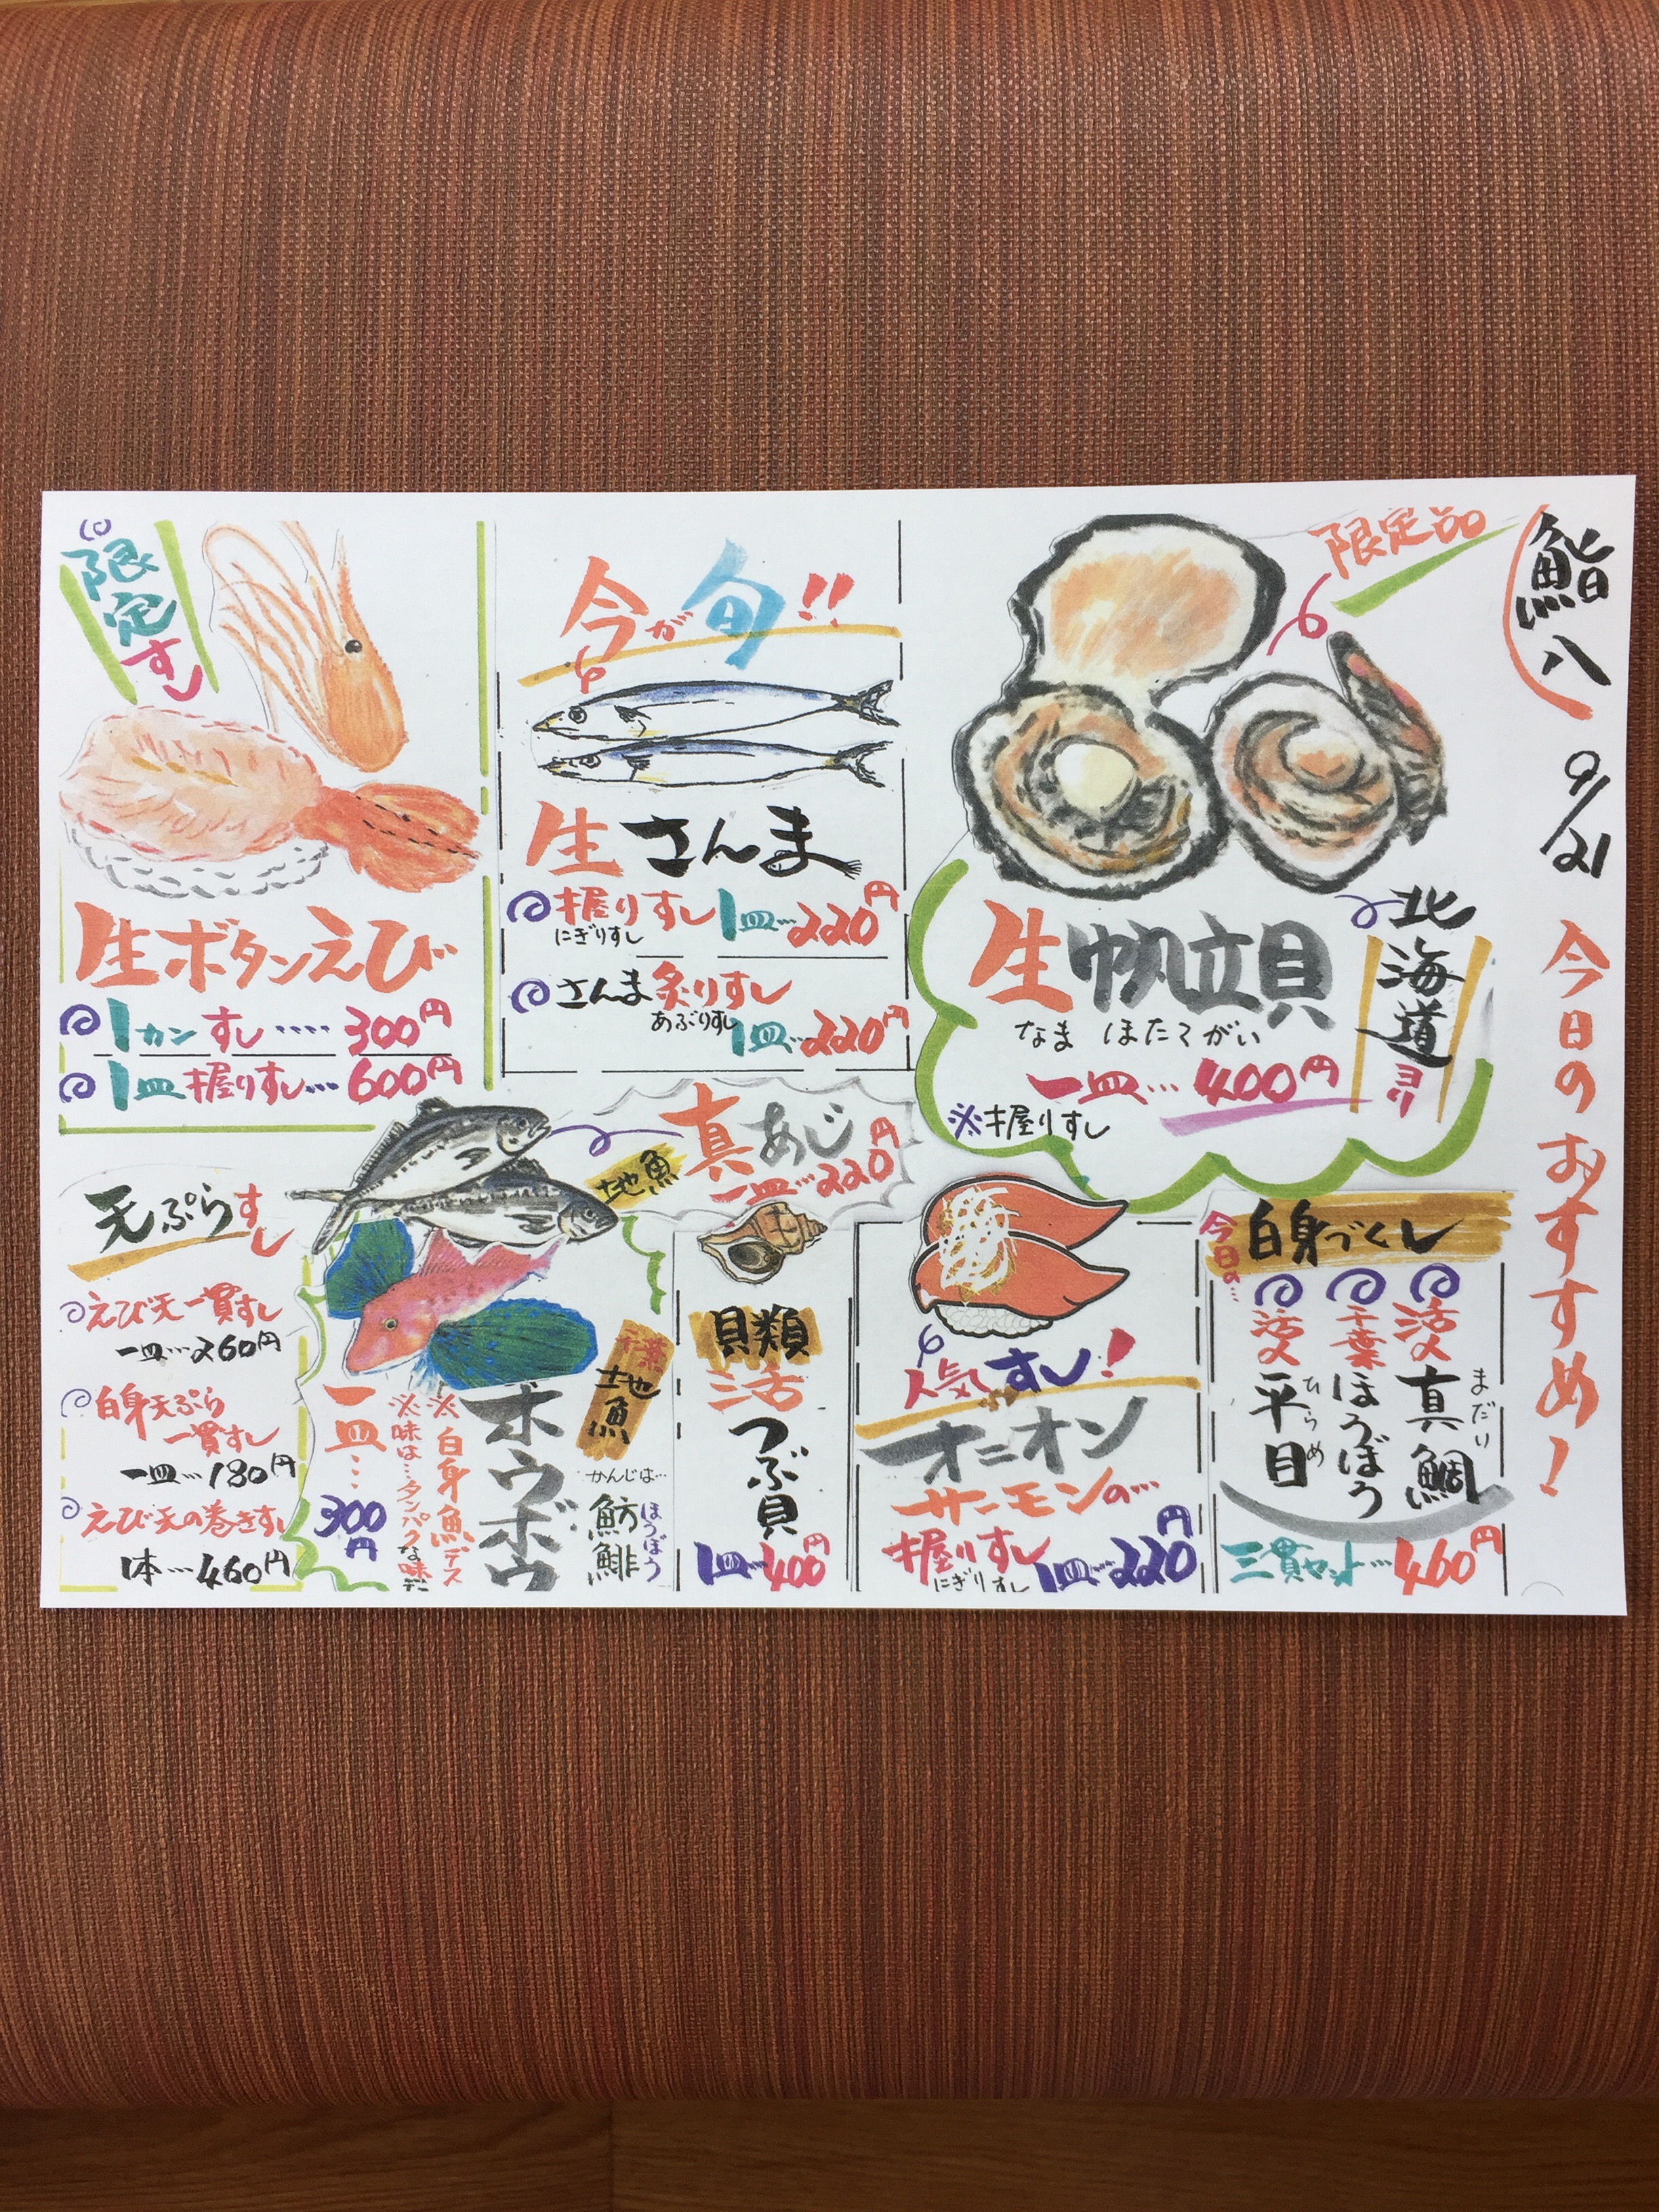 鮨八
9/21
今日のおすすめ!
限定品
北海道ヨリ
生帆立貝
なま ほたてがい
一皿…400円
※握りすし
今が旬!!
生さんま
握りすし1皿…220円
にぎりすし
さんま炙りすし
あぶりすし
1皿…220円
限定すし
生ボタンえび
1カンすし‥‥300円
1皿握りすし…600円
今日の…
白身づくし
活〆真鯛
まだい
千葉ほうぼう
活〆平目
ひらめ
三貫セット…460円
人気すし!
オニオン
サーモンの…
握りすし1皿…220円
にぎりすし
貝類
活つぶ貝
1皿…400円
地魚
真あじ
一皿…220円
千葉地魚
ホウボウ
かんじは…
魴鯡
ほうぼう
※白身魚デス
※味は…タンパクな味デ
一皿…300円
天ぷらすし
えび天一貫すし
一皿…260円
白身天ぷら
一貫すし
一皿…180円
えび天の巻きすし
1本…460円